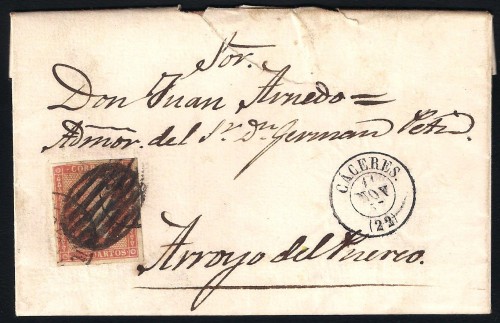 Sor.
Don Juan Arnedo=
Admor. del Sr. Dn. German Peti
CORR
ARTOS
CACERES.
11
NOV
(22)
Arroyo del Puerco.